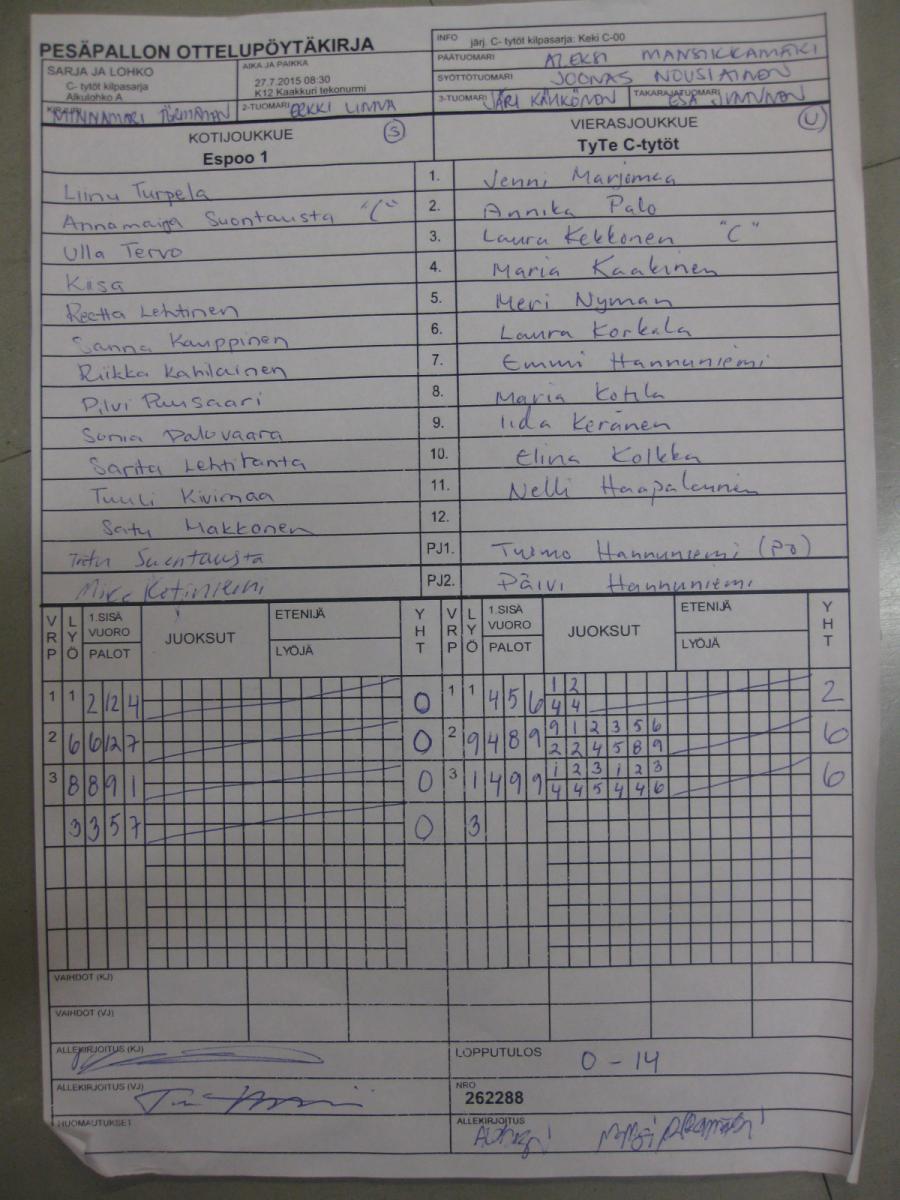 PESÄPALLON OTTELUPÖYTÄKIRJA
INFO järj. C- tytöt kilpasarja: Keki C-00
PÄÄTUOMARI ALEKSI MANSIKKAMÄKI
SARJA JA LOHKO
C- tytöt kilpasarja
Alkulohko A
AIKA JA PAIKKA
27.7.2015 08:30
K12 Kaakkuri tekonurmi
SYÖTTÖTUOMARI JOONAS NOUSIAINEN
KIRJURI MINNAMARI TÖRMÄNEN
2-TUOMARI ERKKI LINNA
3-TUOMARI JARI KÄHKÖNEN
TAKARAJATUOMARI ESA
KOTIJOUKKUE S
Espoo 1
VIERASJOUKKUE U
TyTe C-tytöt
Liinu Turpela 1. Jenni Marjomaa
Annamaija Suontausta "C" 2. Annika Palo
Ulla Tervo 3. Laura Kekkonen "C"
Kiisa 4. Maria Kaakinen
Reetta Lehtinen 5. Meri Nyman
Sanna Kauppinen 6. Laura Korkala
Riikka Kahilainen 7. Emmi Hannuniemi
Pilvi Puusaari 8. Maria Kotila
Sonia Palovaara 9. Iida Keränen
Sarita Lehtiranta 10. Elina Kolkka
Tuuli Kivimaa 11. Nelli Haapalainen
Satu Makkonen 12.
Suontausta PJ1. Tuomo Hannuniemi (PJ)
Mika Kotiniemi PJ2. Päivi Hannuniemi
VRP LYÖ 1.SISÄ VUORO PALOT JUOKSUT ETENIJÄ LYÖJÄ YHT VRP LYÖ 1.SISÄ VUORO PALOT JUOKSUT ETENIJÄ LYÖJÄ YHT
1 1 2 12 4 0 1 1 4 5 6 1 2 2
4 4
2 6 6 12 7 0 2 9 4 8 9 9 1 2 3 5 6 6
2 2 4 5 8 9
3 8 8 9 1 0 3 1 4 9 9 1 2 3 1 2 3 6
4 4 5 4 4 6
3 3 5 7 0 3
VAIHDOT (KJ)
VAIHDOT (VJ)
ALLEKIRJOITUS (KJ)
LOPPUTULOS 0 - 14
ALLEKIRJOITUS (VJ)
NRO
262288
HUOMAUTUKSET
ALLEKIRJOITUS